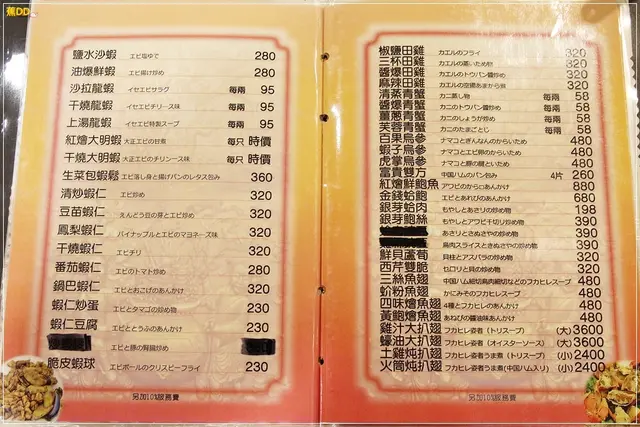 蕉DD
鹽水沙蝦 エビ塩ゆで 280
油爆鮮蝦 エビ揚げ炒め 280
沙拉龍蝦 イセエビサラタ 每兩 95
干燒龍蝦 イセエビチリース味 每兩 95
上湯龍蝦 イセエビ特製スープ 每兩 95
紅燴大明蝦 大正エビの甘煮 每只 時價
干燒大明蝦 大正エビのチリンース味 每只 時價
生菜包蝦鬆 エビ落し身と揚げパンのレタス包み 360
清炒蝦仁 エビ炒め 320
豆苗蝦仁 えんどう豆の芽とエビ炒め 320
鳳梨蝦仁 パイナップルとエビのマヨネーズ味 320
干燒蝦仁 エビチリ 320
番茄蝦仁 エビのトマト炒め 280
鍋巴蝦仁 エビとおこげのあんかけ 320
蝦仁炒蛋 エビとタマゴの炒め物 230
蝦仁豆腐 エビととうふのあんかけ 230
エビと豚の腎臓炒め
脆皮蝦球 エビボールのクリスピーフライ 230
另加10%服務費
椒鹽田雞 カエルのフライ 320
三杯田雞 カエルの蒸いため物 320
醬爆田雞 カエルのトウバン醬炒め 320
麻辣田雞 カエルの空揚あまから煮 320
清蒸青蟹 カニ蒸し物 每兩 58
醬爆青蟹 カニのトウバン醬炒め 每兩 58
薑蔥青蟹 カニのしょうが炒め 每兩 58
芙蓉青蟹 カニのたまごとじ 每兩 58
百果烏參 ナマコとぎんなんのからいため 480
蝦子烏參 ナマコとエビ卵のからいため 480
虎掌烏參 ナマコと豚の腱といため 480
富貴雙方 中国ハムのパン包み 4片 260
紅燴鮮鮑魚 アワビのからにあんかけ 880
金錢蛤鮑 エビとあわびのあんかけ 680
銀芽蛤肉 もやしとあさりの炒め物 198
銀芽鮑絲 もやしとアワビ千切り炒め物 390
あさりとさぬさやの炒め物 390
鳥肉スライスときぬさやの炒め物 390
鮮貝蘆筍 貝柱とアスパラの炒め物 320
西芹雙脆 セロリと貝の炒め物 320
三絲魚翅 中国ハム細切鳥肉細切などのフカヒレスープ 480
蚧粉魚翅 かにみそのフカヒレスープ 480
四味燴魚翅 4種とフカヒレのあんかけ 480
黃鮑燴魚翅 あわびの醬油味あんかけ 480
雞汁大扒翅 フカヒレ姿者 (トリスープ) (大) 3600
蠔油大扒翅 フカヒレ姿者 (オイスターソース) (大) 3600
土雞炖扒翅 フカヒレ姿者うま煮 (トリスープ) (小) 2400
火筒炖扒翅 フカヒレ姿者うま煮 (中国ハム入り) (小) 2400
另加10%服務費